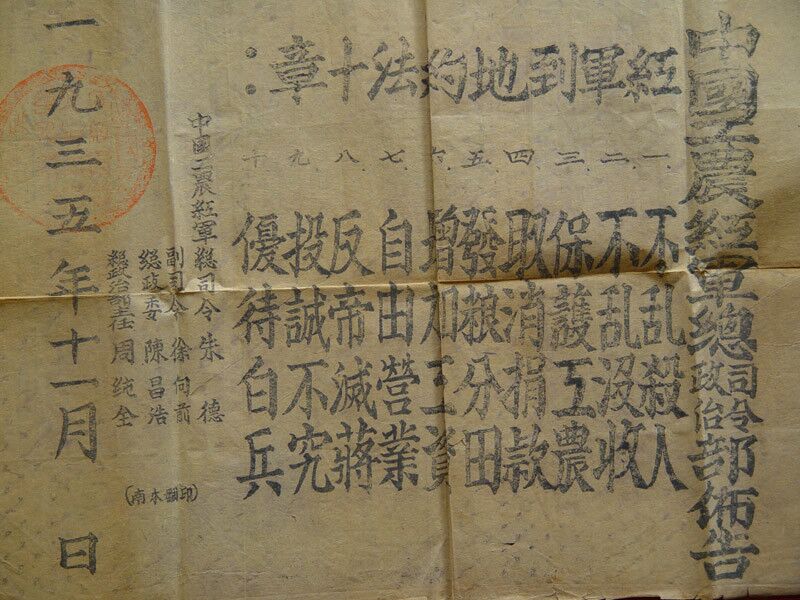 中國工農紅軍總司令政治部佈告
紅軍到地約法十章：
一.不乱殺人
二.不乱没收
三.保護工農
四.取消捐款
五.發粮分田
六.增加工資
七.自由營業
八.反帝滅蔣
九.投誠不究
十.優待白兵
中國工農紅軍總司令朱德
副司令徐向前
總政委陳昌浩
總政治部主任周纯全
(南本翻印)
一九三五年十一月 日